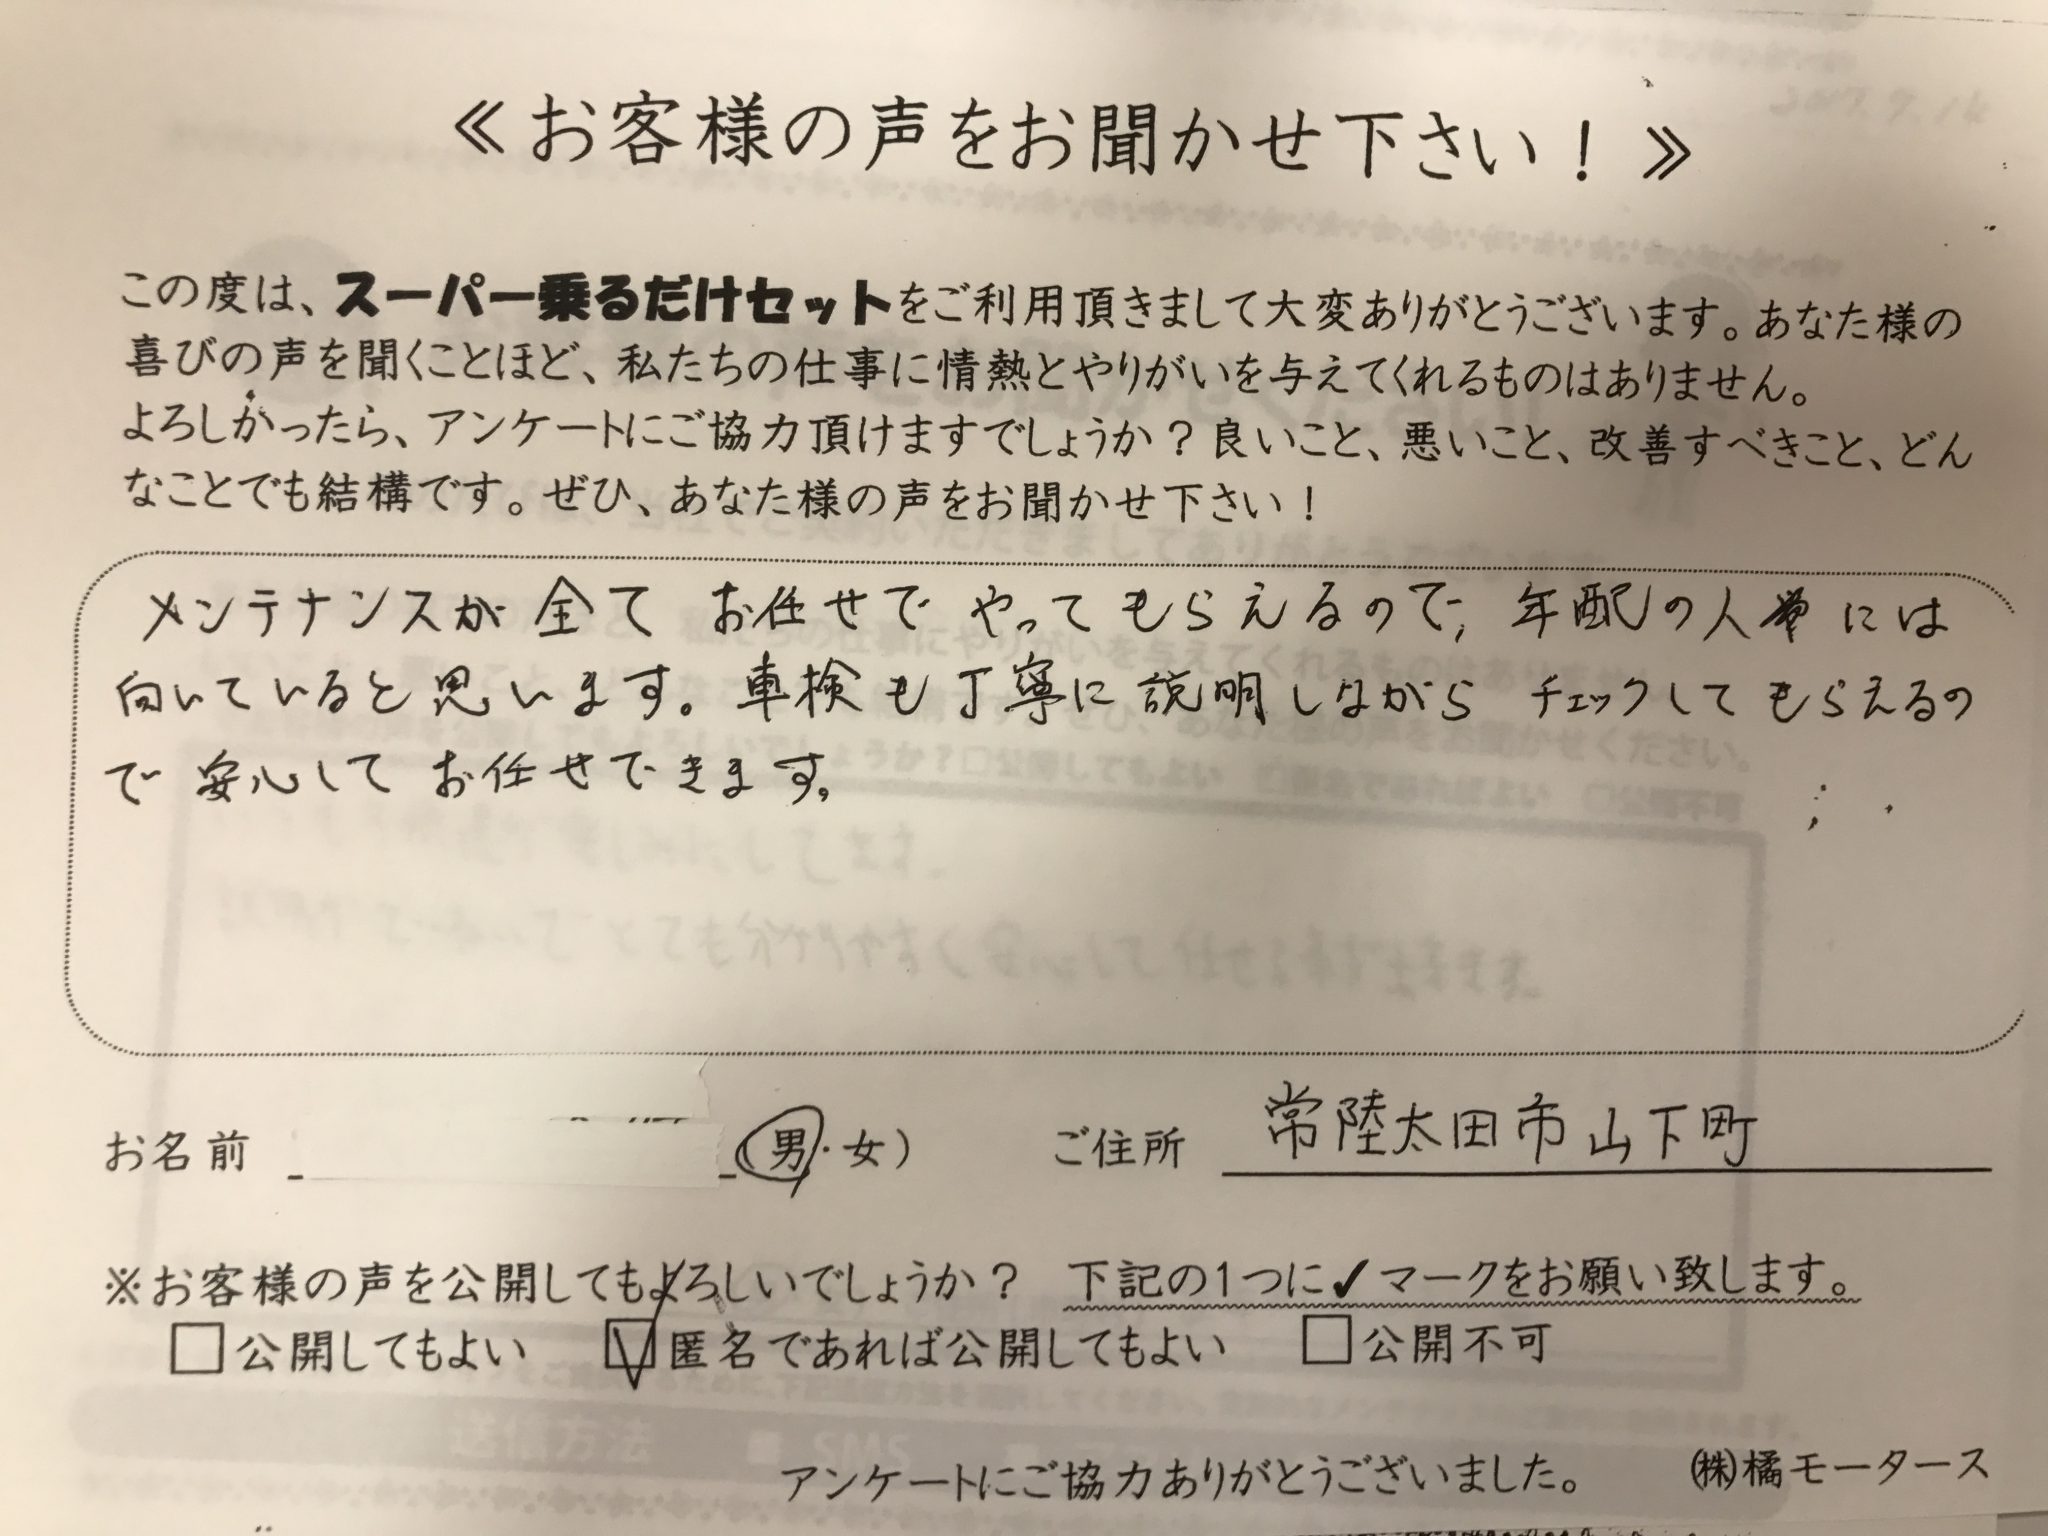 ≪お客様の声をお聞かせ下さい！≫
この度は、スーパー乗るだけセットをご利用頂きまして大変ありがとうございます。あなた様の
喜びの声を聞くことほど、私たちの仕事に情熱とやりがいを与えてくれるものはありません。
よろしかったら、アンケートにご協力頂けますでしょうか？良いこと、悪いこと、改善すべきこと、どん
なことでも結構です。ぜひ、あなた様の声をお聞かせ下さい！
メンテナンスが全てお任せでやってもらえるので、年配の人には
向いていると思います。車検も丁寧に説明しながらチェックしてもらえるの
で安心してお任せできます。
お名前 男・女） ご住所 常陸太田市山下町
※お客様の声を公開してもよろしいでしょうか？ 下記の1つに✓マークをお願い致します。
□公開してもよい ☑匿名であれば公開してもよい □公開不可
アンケートにご協力ありがとうございました。 ㈱橘モータース